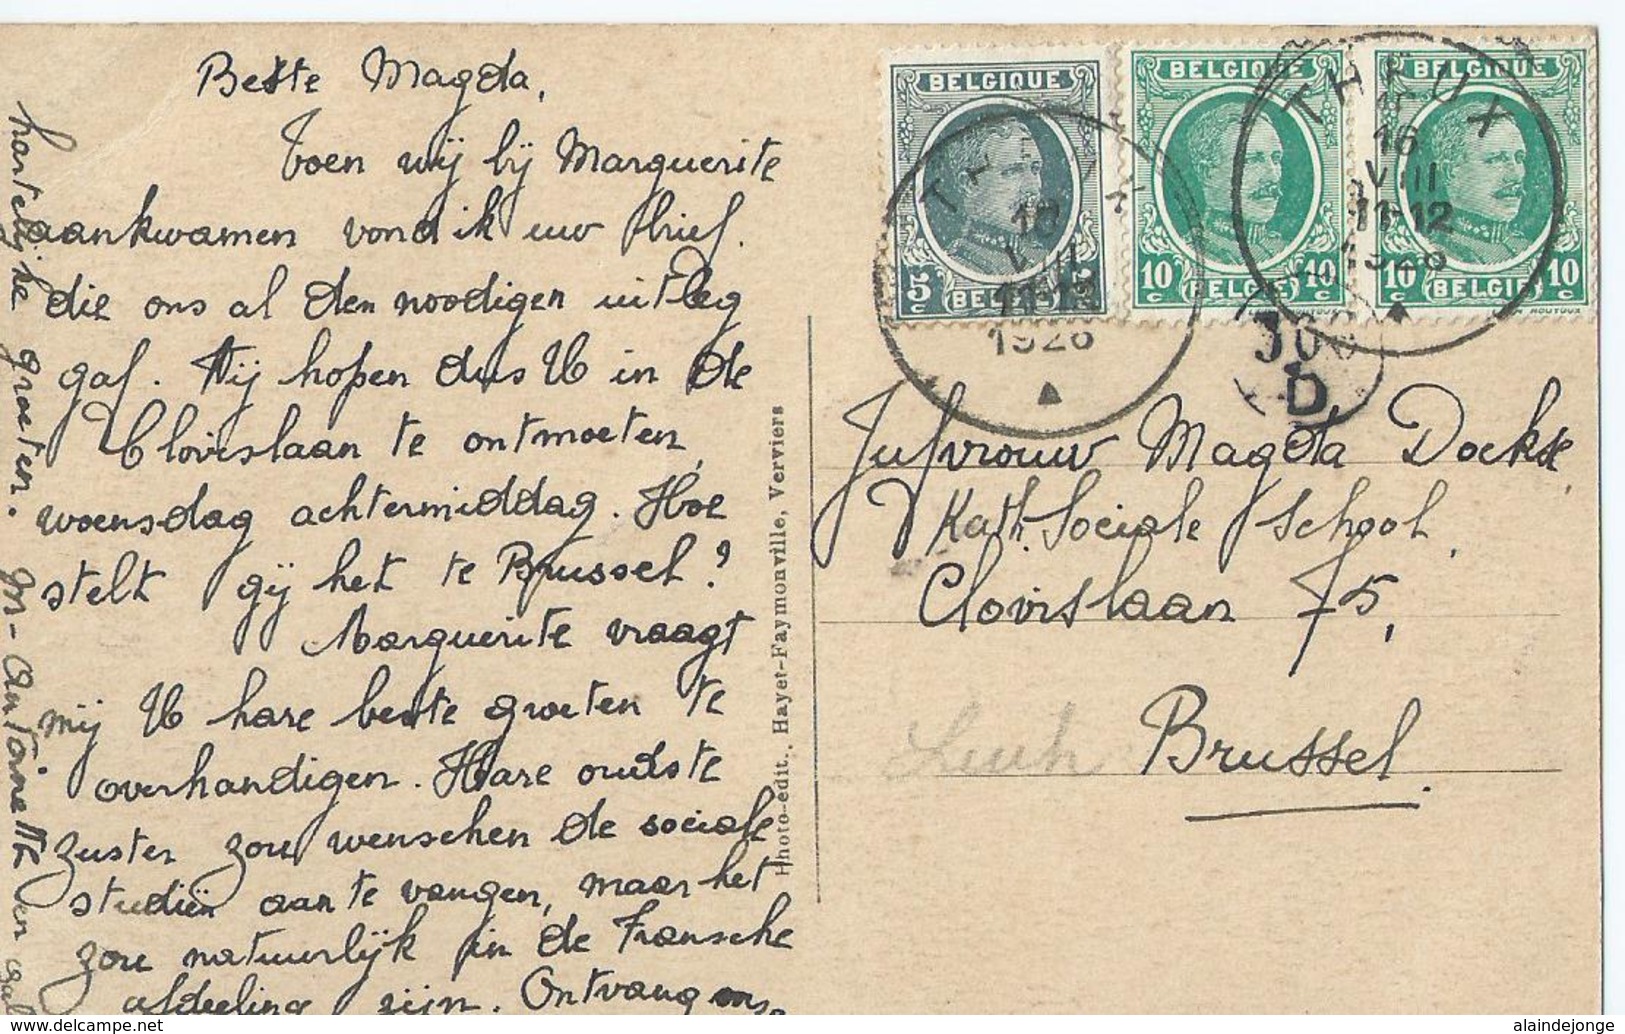 Beste Magda,
Toen wij bij Marguerite
aankwamen vond ik uw brief.
die ons al den noodigen uitleg
gaf. Wij hopen dus U in de
Clovislaan te ontmoeten,
woensdag achtermiddag. Hoe
stelt gij het te Brussel?
Marguerite vraagt
mij U hare beste groeten te
overhandigen. Hare oudste
zuster zou wenschen de sociale
studiën aan te vangen, maar het
zou natuurlijk in de Fransche
afdeeling zijn. Ontvang onze
hartelijke groeten. M-Antoinette en
Photo-edit. Hayet-Faymonville, Verviers
BELGIQUE
5 c
BELGIE
BELGIQUE
10 c 10 c
BELGIE
BELGIQUE
10 c 10 c
BELGIE
THEUX
16
VIII
11-12
1926
THEUX
16
VIII
11-12
1926
D
Jufvrouw Magda
Kath. Sociale School,
Clovislaan 75,
Brussel.
https://www.delcampe.net
alaindejonge